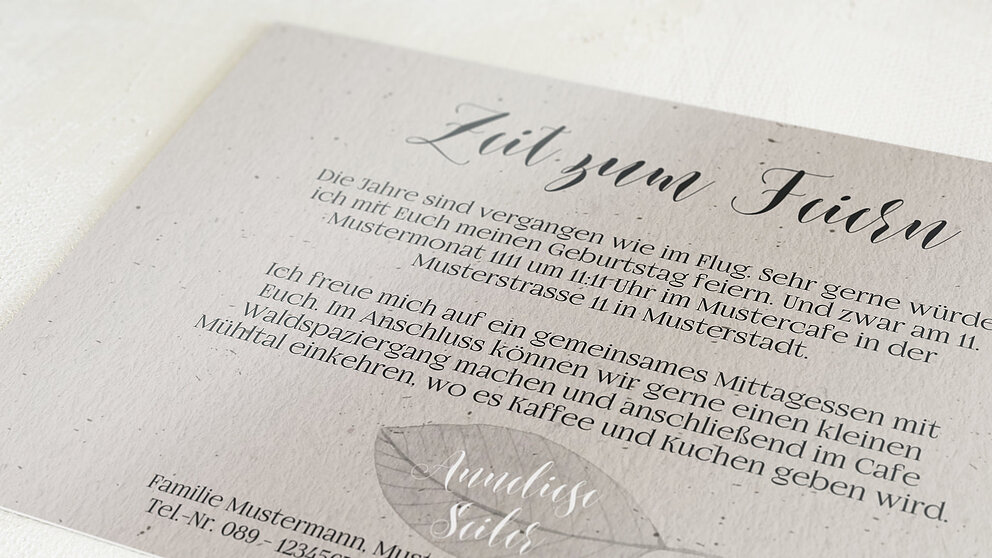 Zeit zum Feiern
Die Jahre sind vergangen wie im Flug. Sehr gerne würde
ich mit Euch meinen Geburtstag feiern. Und zwar am 11.
Mustermonat 1111 um 11:11 Uhr im Mustercafe in der
Musterstrasse 11 in Musterstadt.
Ich freue mich auf ein gemeinsames Mittagessen mit
Euch. Im Anschluss können wir gerne einen kleinen
Waldspaziergang machen und anschließend im Cafe
Mühltal einkehren, wo es Kaffee und Kuchen geben wird.
Anneliese
Seiler
Familie Mustermann,
Tel.-Nr. 089 -